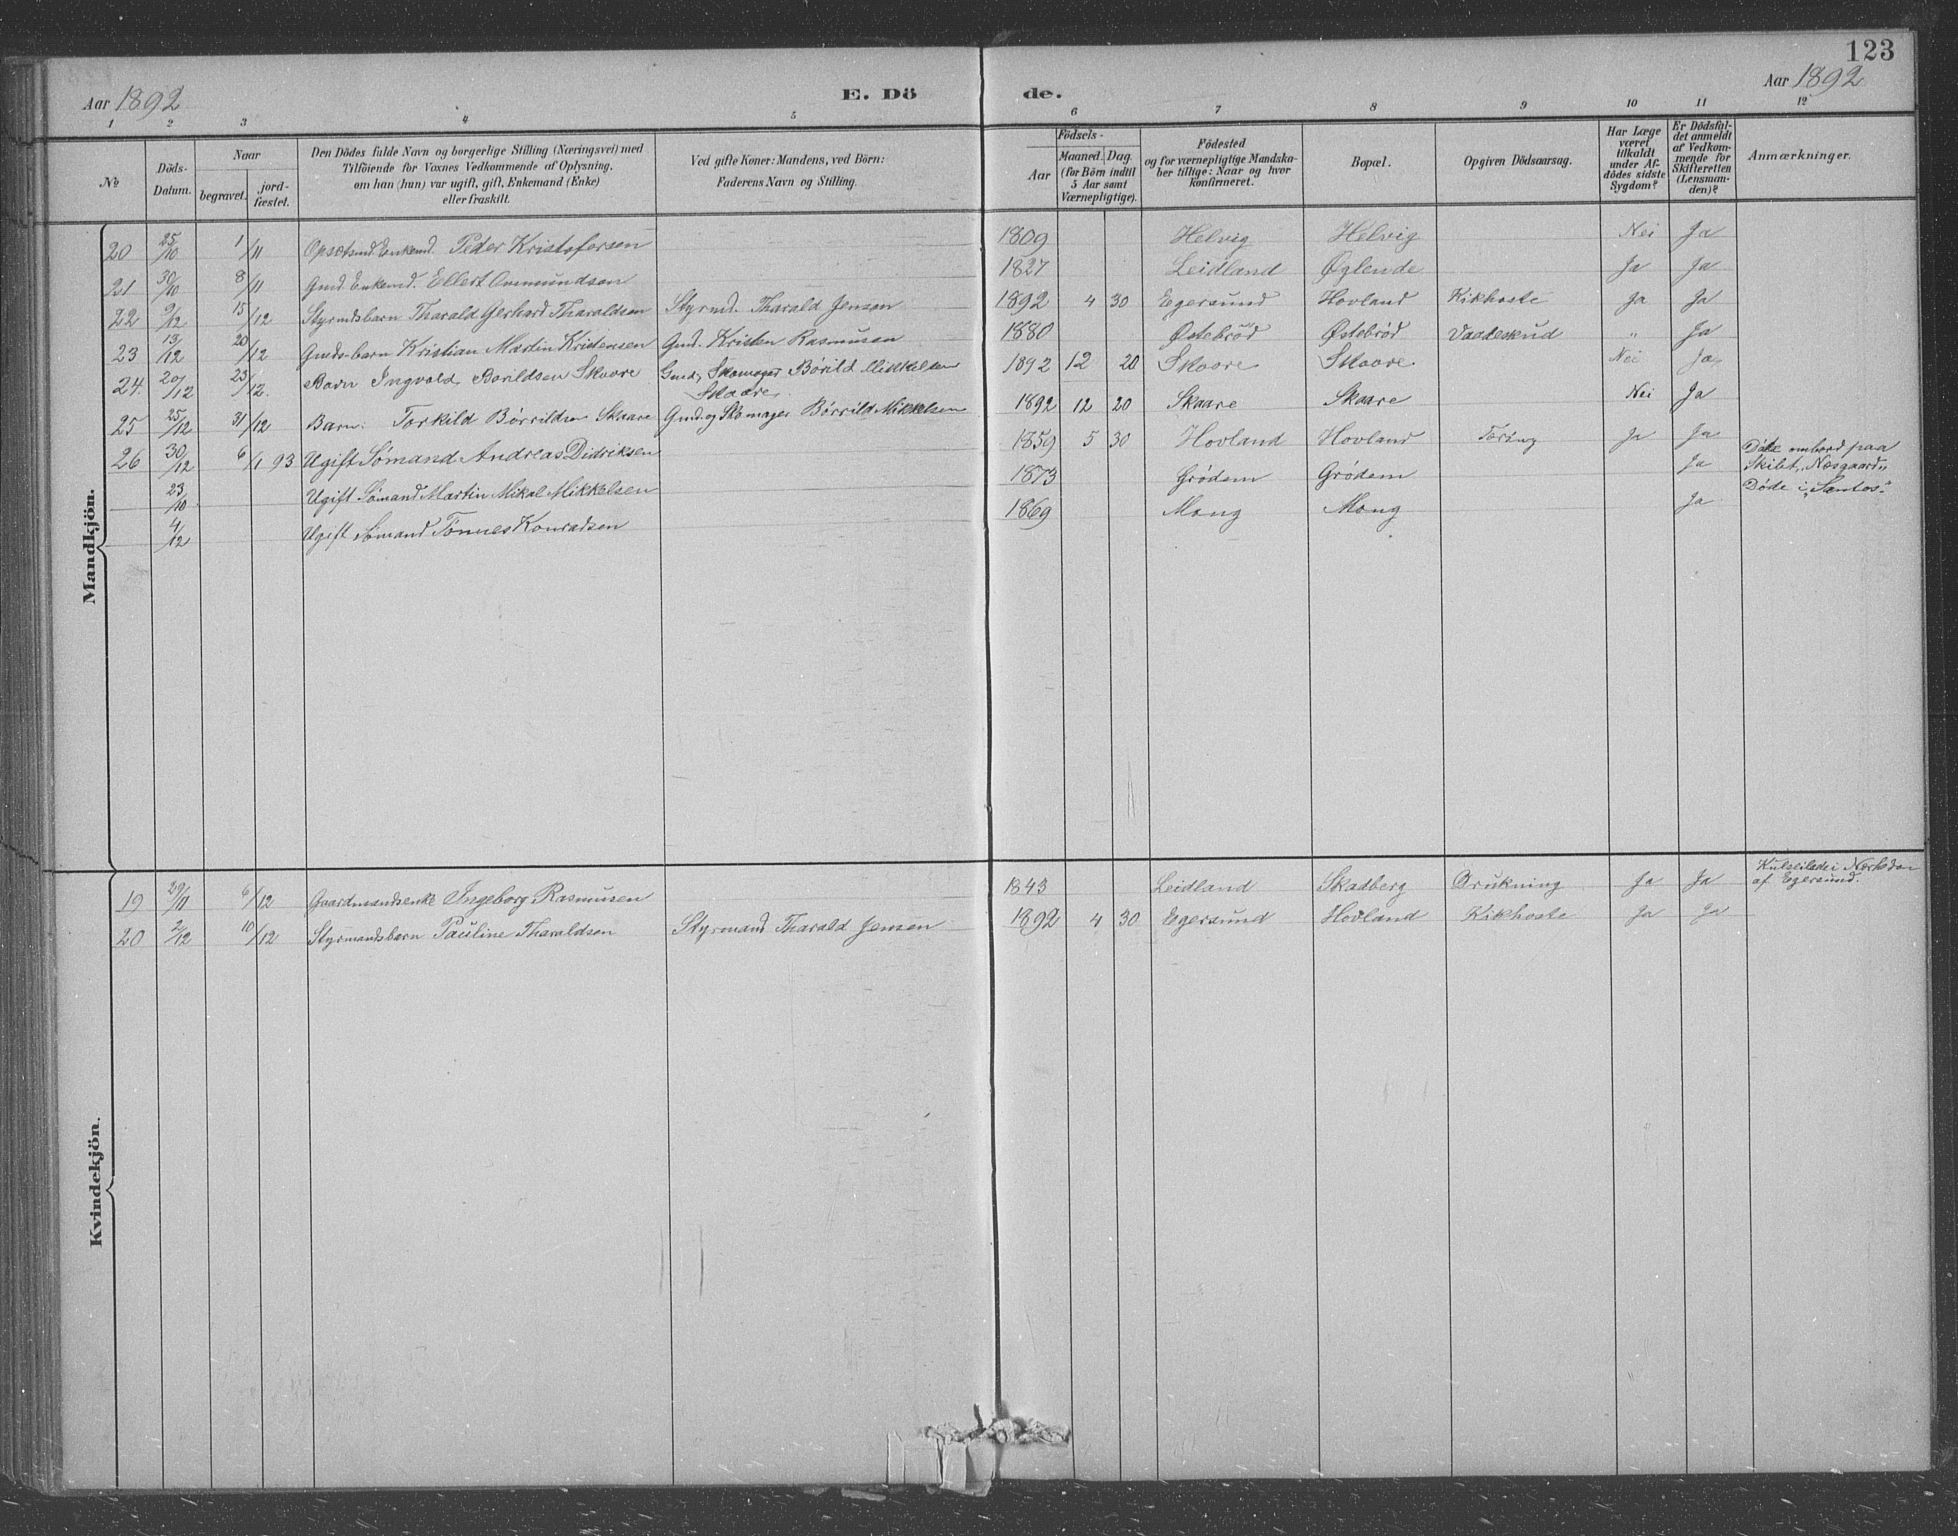 123
Aar 1892
E. Dö de.
Aar 1892
1 2 3 4 5 6 7 8 9 10 11 12
No
Döds-Datum.
Naar
begravet.
jord-fæstet.
Den Dödes fulde Navn og borgerlige Stilling (Næringsvei) med
Tilföiende for Voxnes Vedkommende af Oplysning,
om han (hun) var ugift, gift, Enkemand (Enke)
eller fraskilt.
Ved gifte Koner: Mandens, ved Börn:
Faderens Navn og Stilling.
Födsels-
Aar
Maaned. Dag.
(for Börn indtil
5 Aar samt
Værnepligtige).
Födested
og for værnepligtige Mandska-
ber tillige: Naar og hvor
konfirmeret.
Bopæl.
Opgiven Dödsaarsag.
Har Læge
været
tilkaldt
under Af-
dödes sidste
Sygdom?
Er Dödsfal-
det anmeldt
af Vedkom-
mende for
Skifteretten
(Lensman-
den)?
Anmærkninger.
Mandkjön.
20 25/10 1/11 Opsætsmd Enkemd. Peder Kristofersen 1809 Helvig Helvig Nei Ja
21 30/10 8/11 Gmd. Enkemd. Ellert Ommundsen 1827 Leidland Øglende Ja Ja
22 9/12 15/12 Styrmdsbarn Tharald Gerhard Tharaldsen Styrmd. Tharald Jensen 1892 4 30 Egersund Hovland Kikhoste Ja Ja
23 13/12 20/12 Gmds-barn Kristian Martin Kristensen Gmd. Kristen Rasmusen 1880 Østebrød Østebrød Vaadeskud " Ja
24 20/12 25/12. Barn Ingvald Borildsen Skaare Gmd, Skomager Børild Mikkelsen 1892 12 20 Skaare Skaare. Nei Ja
Skaare.
25 25/12 31/12 Barn: Torkild Børrildsen Skaare Gmd. og Skomager Børrild Mikkelsen 1892 12 20 Skaare Skaare Nei Ja
26 30/12 6/1 93 Ugift Sømand Andreas Didriksen 1859 5 30 Hovland Hovland Tæring Ja Ja
23/10 Ugift Sømand Martin Mikal Mikkelsen 1873 Grødem Grødem Ja Døde ombord paa
Skibet "Næsgaard"
4/12 Ugift Sømand Tønnes Konradsen 1869 Mong Mong Ja Døde i "Santos"
Kvindekjön.
19 29/11 6/12 Gaardmandsenke Ingeborg Rasmusen 1843 Leidland Skadberg Drukning Ja Ja Nærheden
af Egersund.
20 2/12 10/12 Styrmandsbarn Pauline Tharaldsen Styrmand Tharald Jensen 1892 4 30 Egersund Hovland Kikhoste Ja Ja